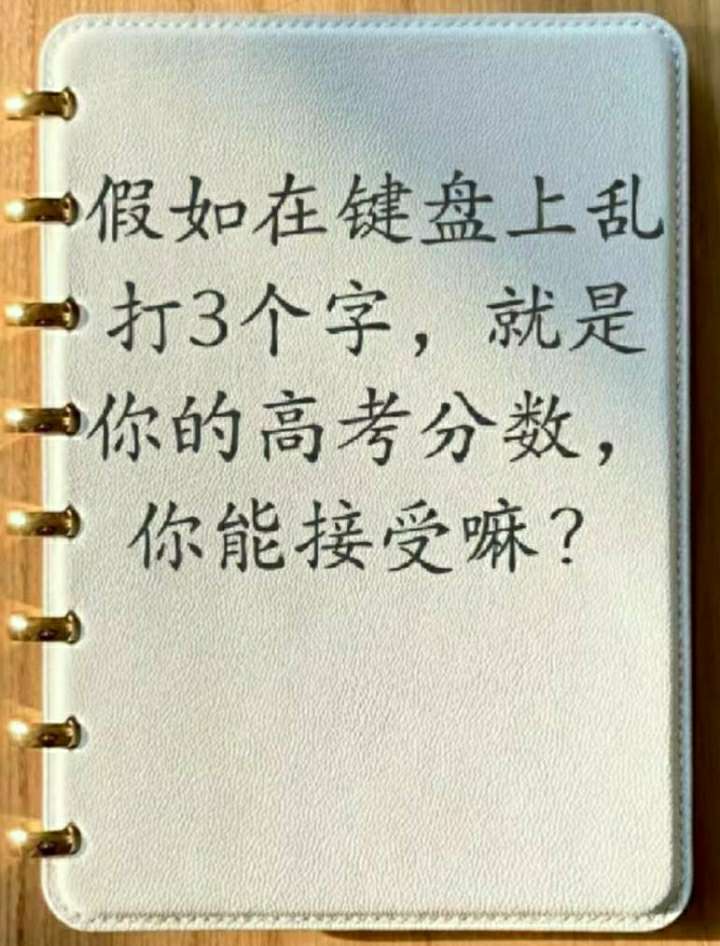 假如在键盘上乱
打3个字，就是
你的高考分数，
你能接受嘛？